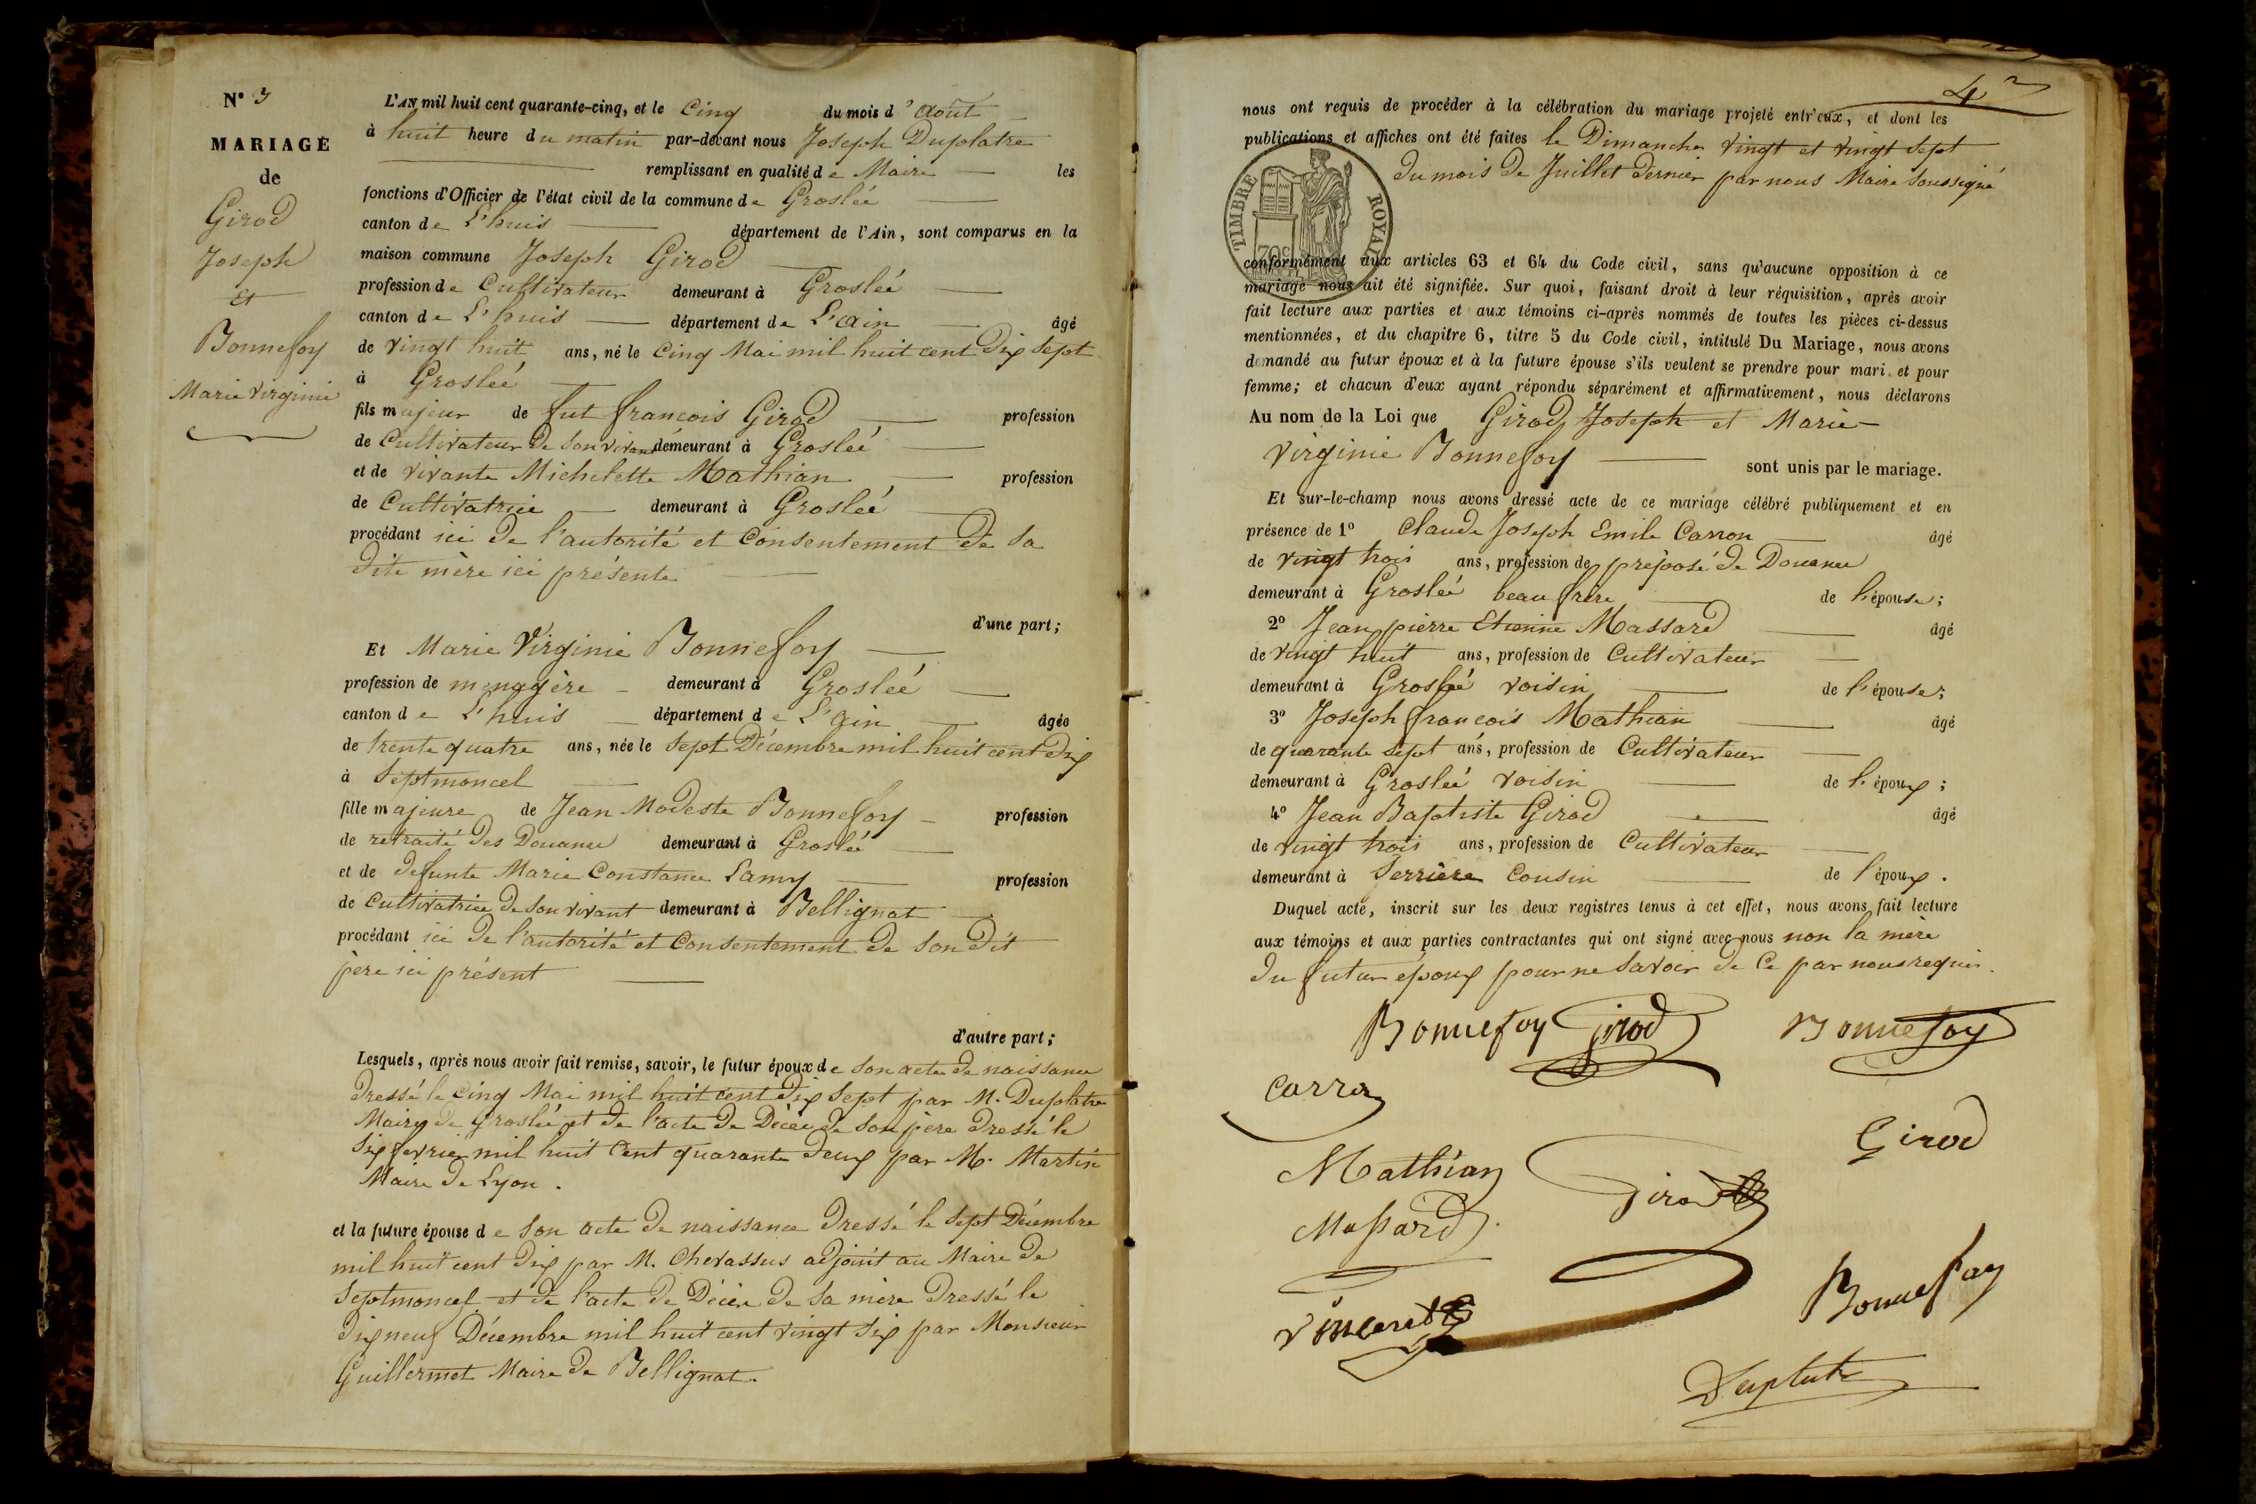 N° 3
MARIAGE
de
Girod
Joseph
Et
Bonnefoy
Marie Virginie
L'AN mil huit cent quarante-cinq, et le Cinq du mois d'Août
à huit heure du matin par-devant nous Joseph Duplatre
remplissant en qualité de Maire les
fonctions d'Officier de l'état civil de la commune de Groslée
canton de L'huis département de l'Ain, sont comparus en la
maison commune Joseph Girod
profession de Cultivateur demeurant à Groslée
canton de L'huis département de L'ain âgé
de vingt huit ans, né le Cinq Mai mil huit cent Dix Sept
à Groslée
fils majeur de fut françois Girod profession
de Cultivateur de son vivant demeurant à Groslée
et de vivante Michelette Mathian profession
de Cultivatrice demeurant à Groslée
procédant ici de l'autorité et Consentement de Sa
dite mère ici présente
d'une part;
Et Marie Virginie Bonnefoy
profession de menagère demeurant à Groslée
canton de L'huis département de L'ain âgée
de trente quatre ans, née le Sept Décembre mil huit cent dix
à Septmoncel
fille majeure de Jean Modeste Bonnefoy profession
de retraité des Douanes demeurant à Groslée
et de defunte Marie Constance Lamy profession
de Cultivatrice de son vivant demeurant à Bellignat
procédant ici de l'autorité et Consentement de Son dit
père ici présent
d'autre part;
Lesquels, après nous avoir fait remise, savoir, le futur époux de son acte de naissance
dressé le Cinq Mai mil huit cent dix Sept par M. Duplatre
Maire de Groslée et de l'acte de Décès de Son père dressé le
Six fevrier mil huit Cent quarante deux par M. Martin
Maire de Lyon.
et la future épouse de Son acte de naissance dressé le Sept Décembre
mil huit cent dix par M. Chevassus adjoint au Maire de
Septmoncel et de l'acte de Décès de Sa mère dressé le
dix neuf Décembre mil huit cent vingt Six par Monsieur
Guillermet Maire de Bellignat.
42
nous ont requis de procéder à la célébration du mariage projeté entr'eux, et dont les
publications et affiches ont été faites le Dimanche vingt et vingt Sept
du mois de Juillet dernier par nous Maire Soussigné
TIMBRE ROYAL
conformément aux articles 63 et 64 du Code civil, sans qu'aucune opposition à ce
mariage nous ait été signifiée. Sur quoi, faisant droit à leur réquisition, après avoir
fait lecture aux parties et aux témoins ci-après nommés de toutes les pièces ci-dessus
mentionnées, et du chapitre 6, titre 5 du Code civil, intitulé Du Mariage, nous avons
demandé au futur époux et à la future épouse s'ils veulent se prendre pour mari et pour
femme; et chacun d'eux ayant répondu séparément et affirmativement, nous déclarons
Au nom de la Loi que Girod Joseph et Marie
Virginie Bonnefoy sont unis par le mariage.
Et sur-le-champ nous avons dressé acte de ce mariage célébré publiquement et en
présence de 1° Claude Joseph Emile Carron âgé
de vingt trois ans, profession de préposé de Douanes
demeurant à Groslée beau frère de l'épouse;
2° Jean pierre Etienne Massard âgé
de vingt huit ans, profession de Cultivateur
demeurant à Groslée voisin de l'épouse;
3° Joseph françois Mathian âgé
de quarante Sept ans, profession de Cultivateur
demeurant à Groslée voisin de l'époux;
4° Jean Baptiste Girod âgé
de vingt trois ans, profession de Cultivateur
demeurant à Serrière Cousin de l'époux.
Duquel acte, inscrit sur les deux registres tenus à cet effet, nous avons fait lecture
aux témoins et aux parties contractantes qui ont signé avec nous non la mère
du futur époux pour ne Savoir de Ce par nous requis.
Bonnefoy Girod Bonnefoy
Carron
Girod
Mathian
Girod
Massard
Bonnefoy
Vincent
Duplatre